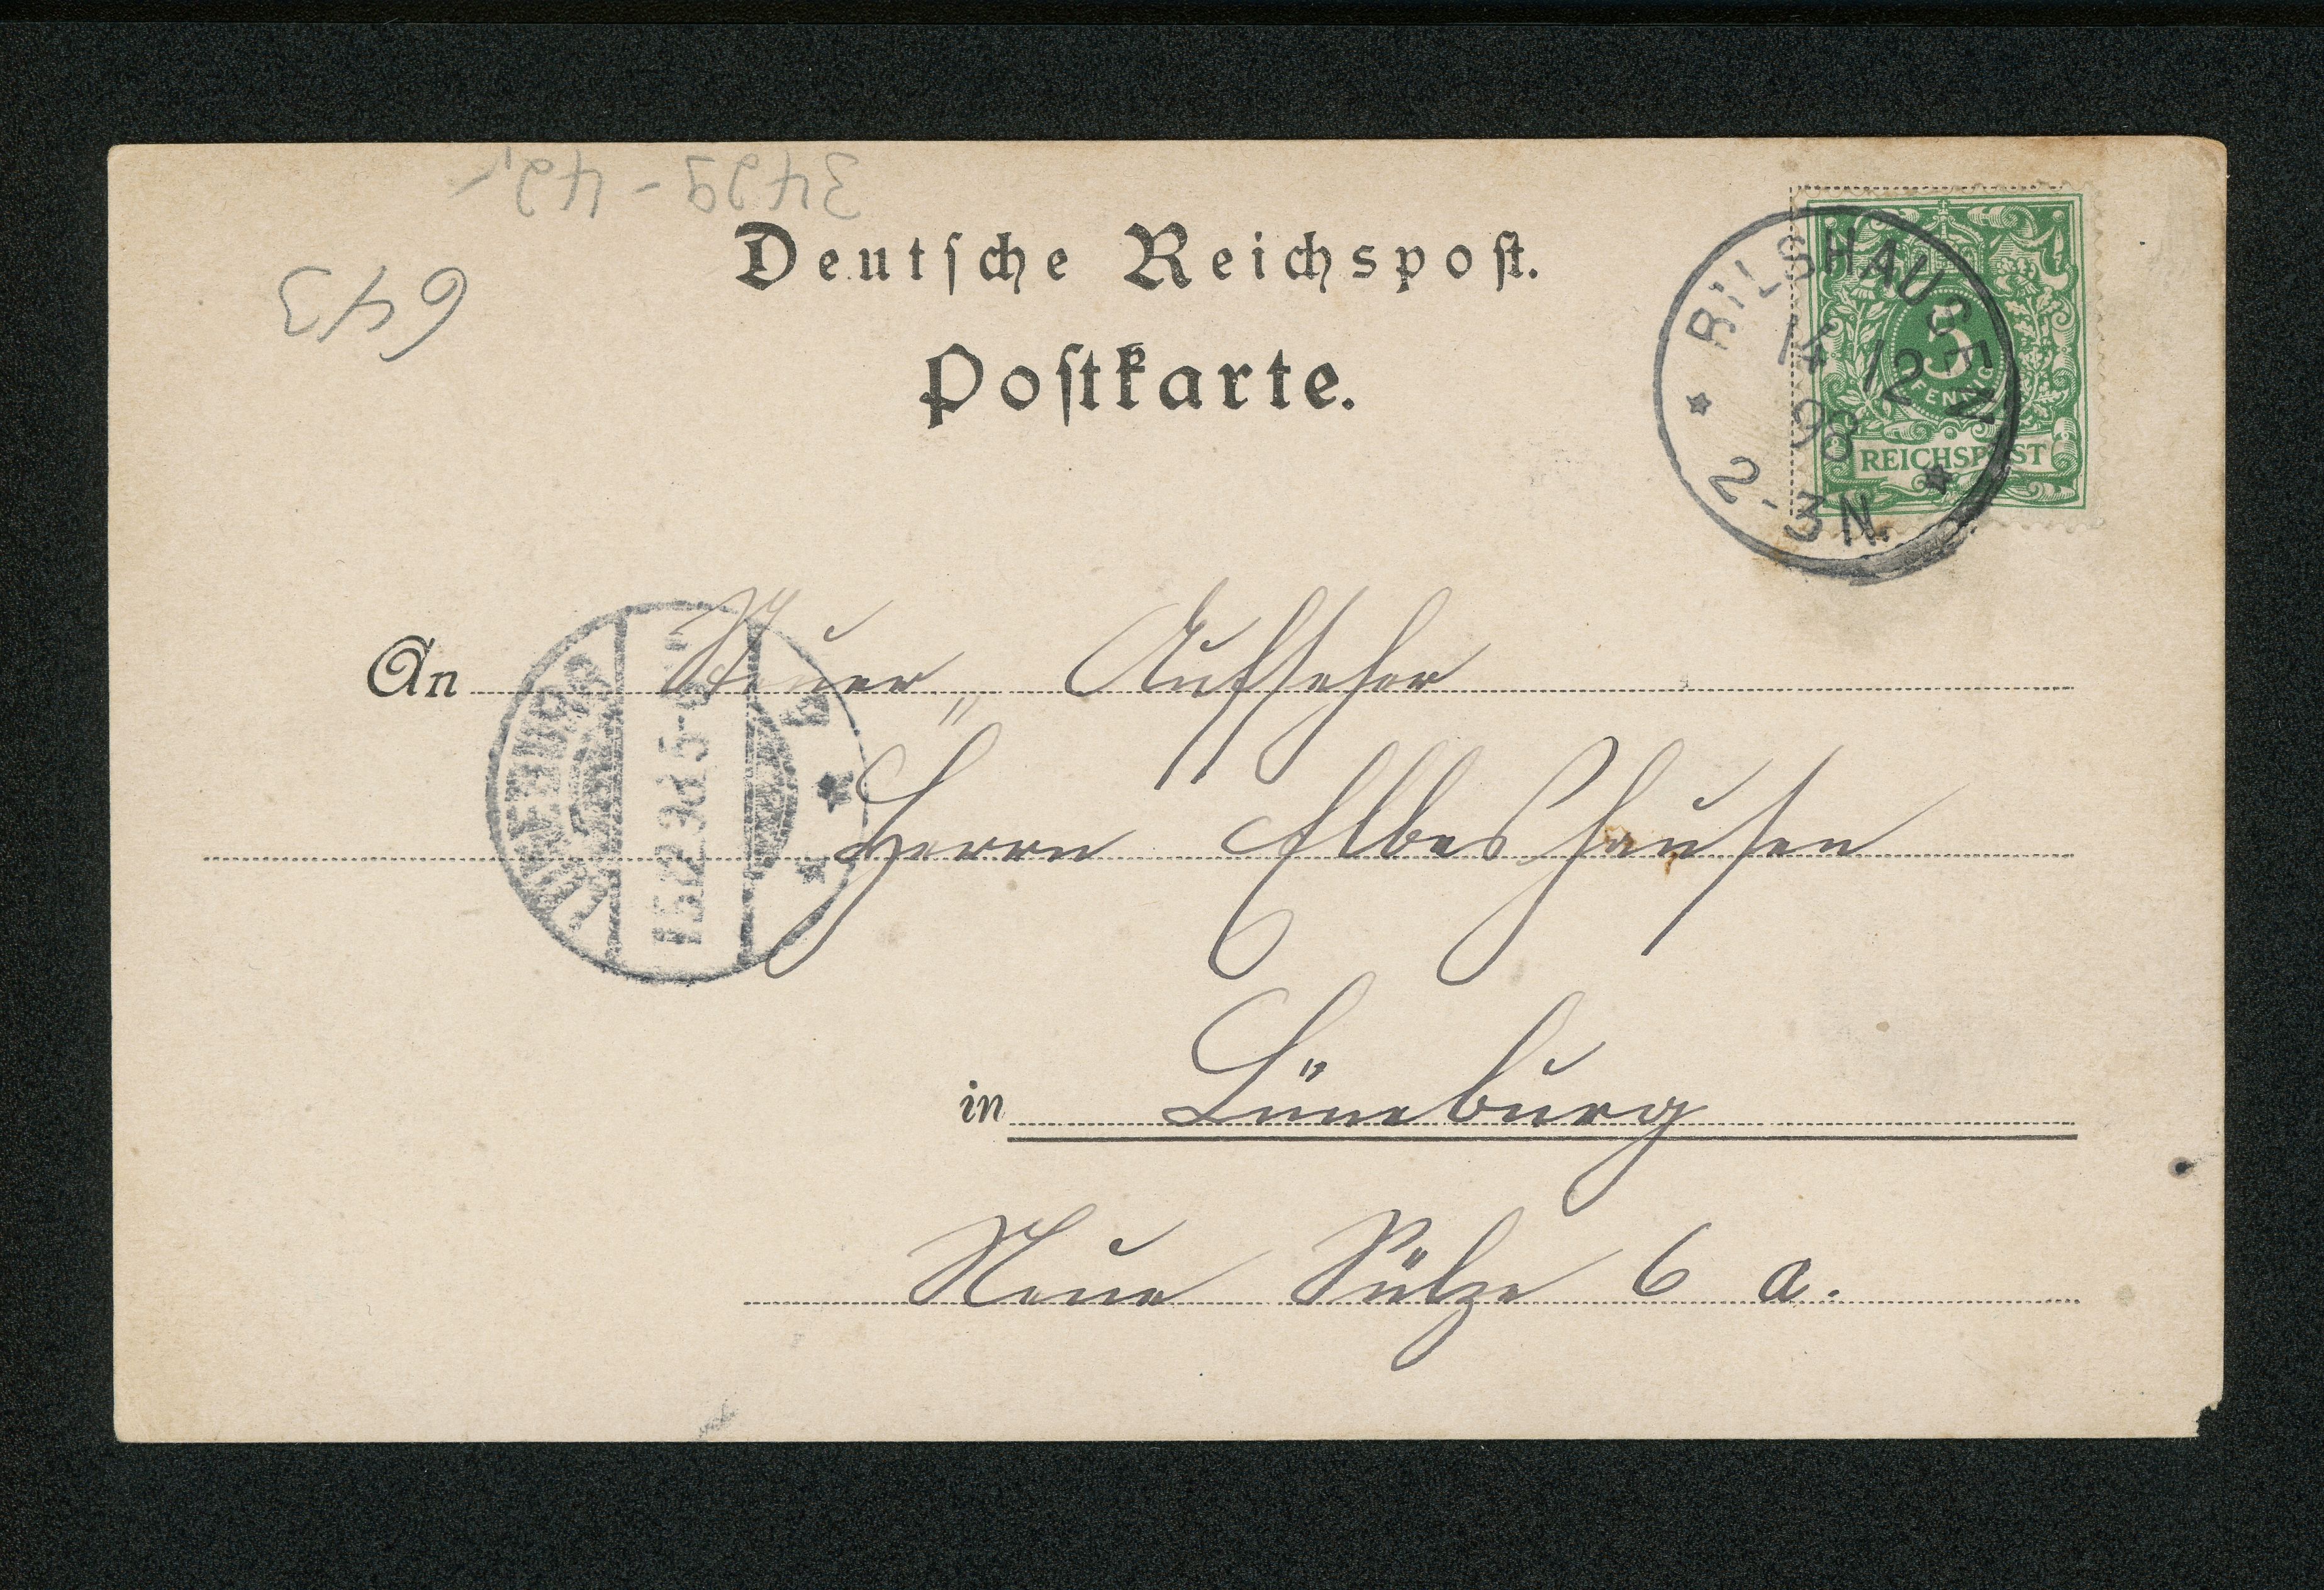 3429 - 42,-
643
Deutsche Reichspost.
Postkarte.
BILSHAUSEN
14 12
98
2-3N.
5
PFENNIG
REICHSPOST
An Steuer„ Aufseher
Herrn Elbeshausen
in Lüneburg
Neue Sülze 6 a.
LÜNEBURG
15.12.98.5-6